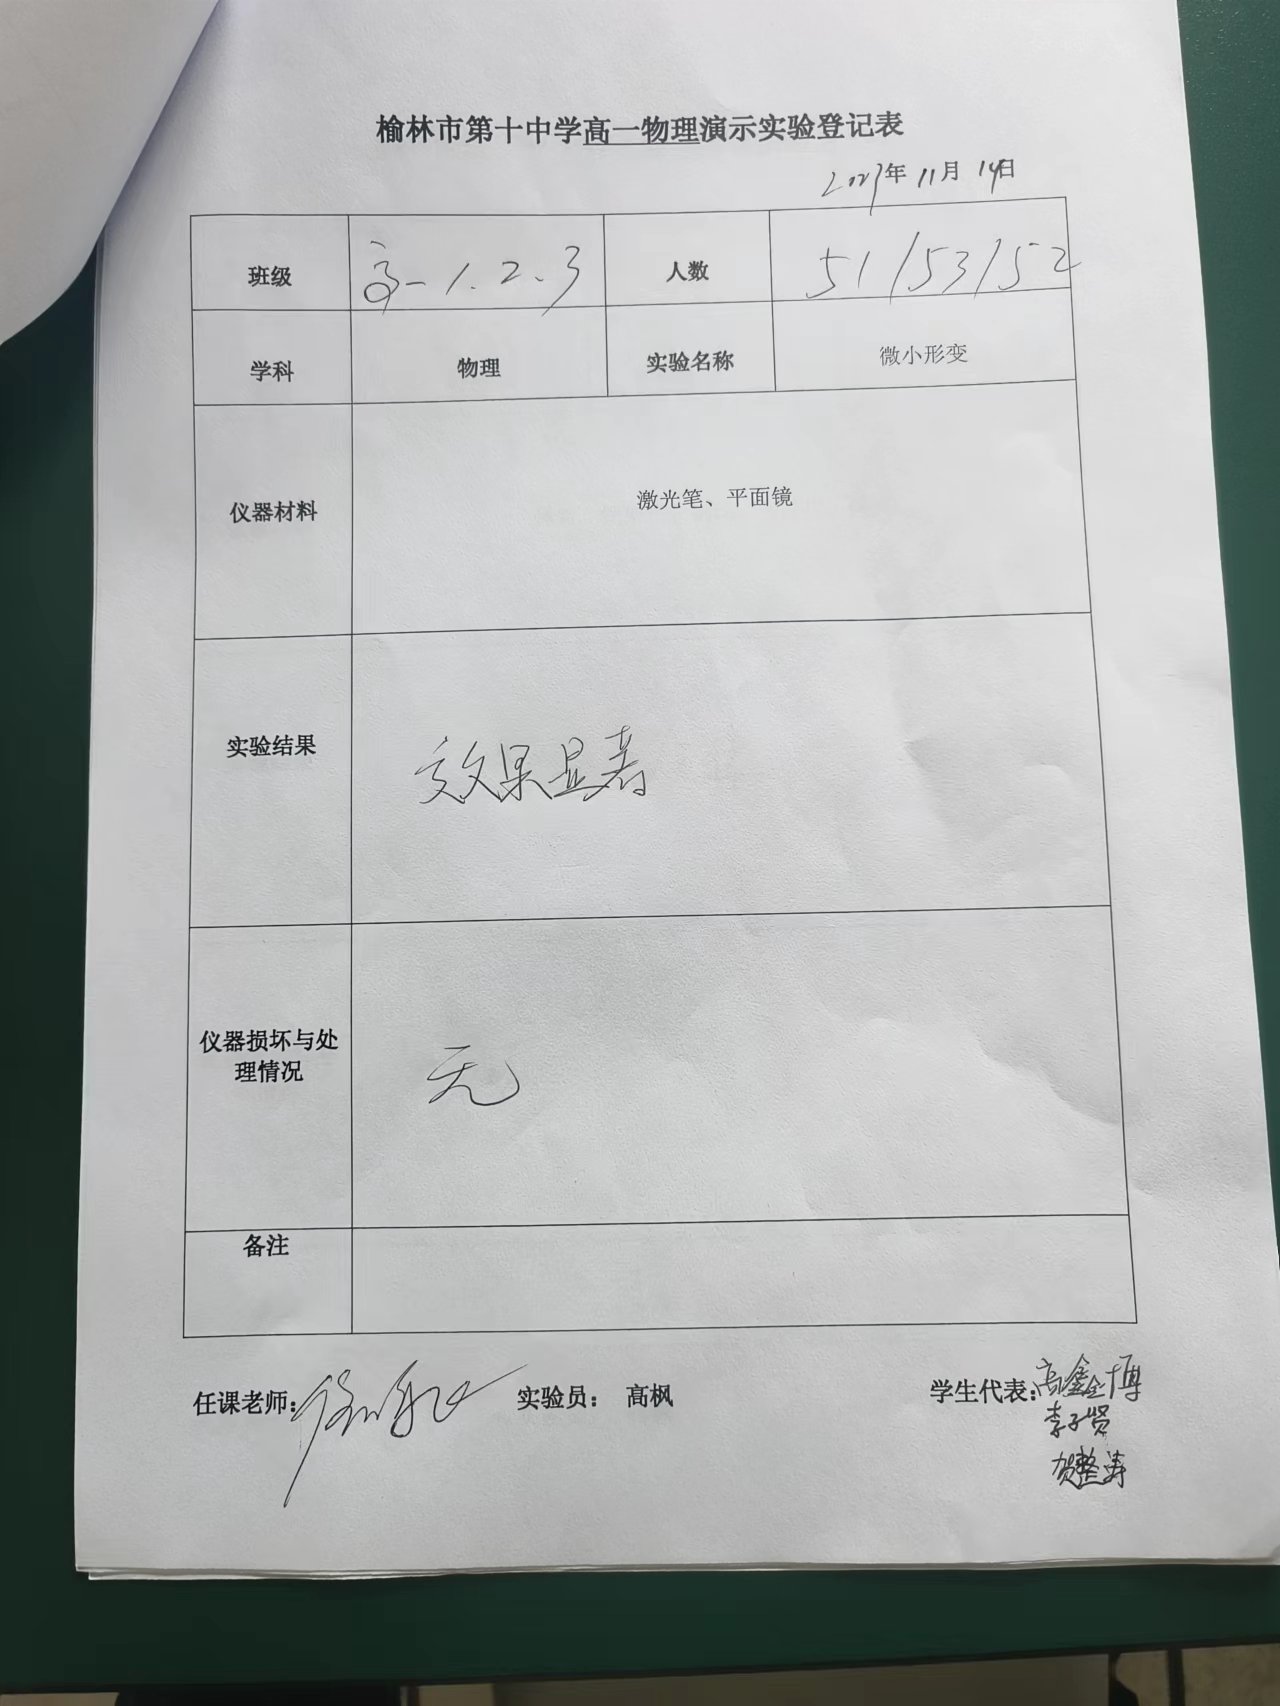 榆林市第十中学高一物理演示实验登记表
2023年 11月 14日
班级 高一1.2、3 人数 51/53/52
学科 物理 实验名称 微小形变
仪器材料 激光笔、平面镜
实验结果 效果显著
仪器损坏与处
理情况 无
备注
任课老师: 实验员： 高枫 学生代表:高鑫博
李子贤
贺整涛